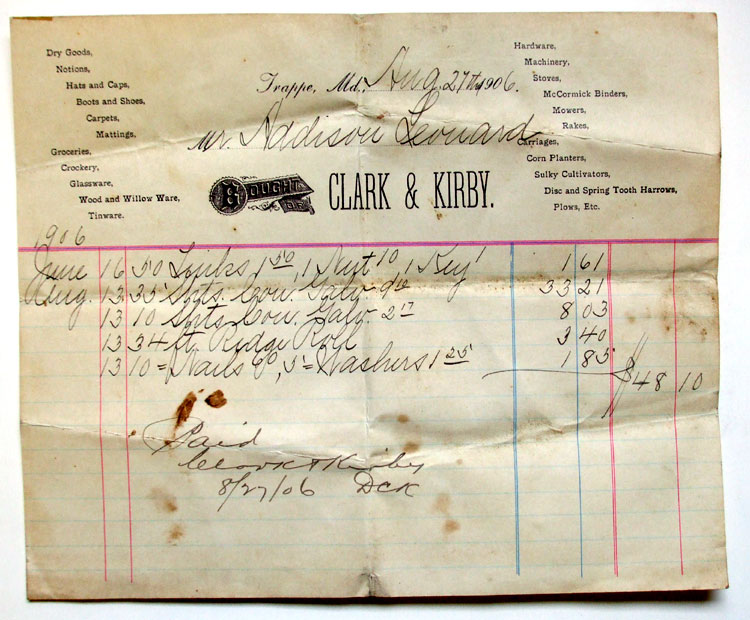 Dry Goods,
Notions,
Hats and Caps,
Boots and Shoes,
Carpets,
Mattings,
Groceries,
Crockery,
Glassware,
Wood and Willow Ware,
Tinware.
Hardware,
Machinery,
Stoves,
McCormick Binders,
Mowers,
Rakes,
Carriages,
Corn Planters,
Sulky Cultivators,
Disc and Spring Tooth Harrows,
Plows, Etc.
Trappe, Md., Aug 27th 1906.
Mr. Addison Leonard
BOUGHT OF CLARK & KIRBY.
1906
June 16 50 Links 1 50, 1 Nut 10, 1 Key 1 1 61
Aug. 13 35 Shts. Cou. Galv. 33 21
13 10 Shts Cou. Galv. 2 17 8 03
13 34 ft Ridge Roll 3 40
13 10 = Nails 60, 5 = Washers 1 25 1 85
$48 10
Paid
Clark & Kirby
8/27/06 DCK